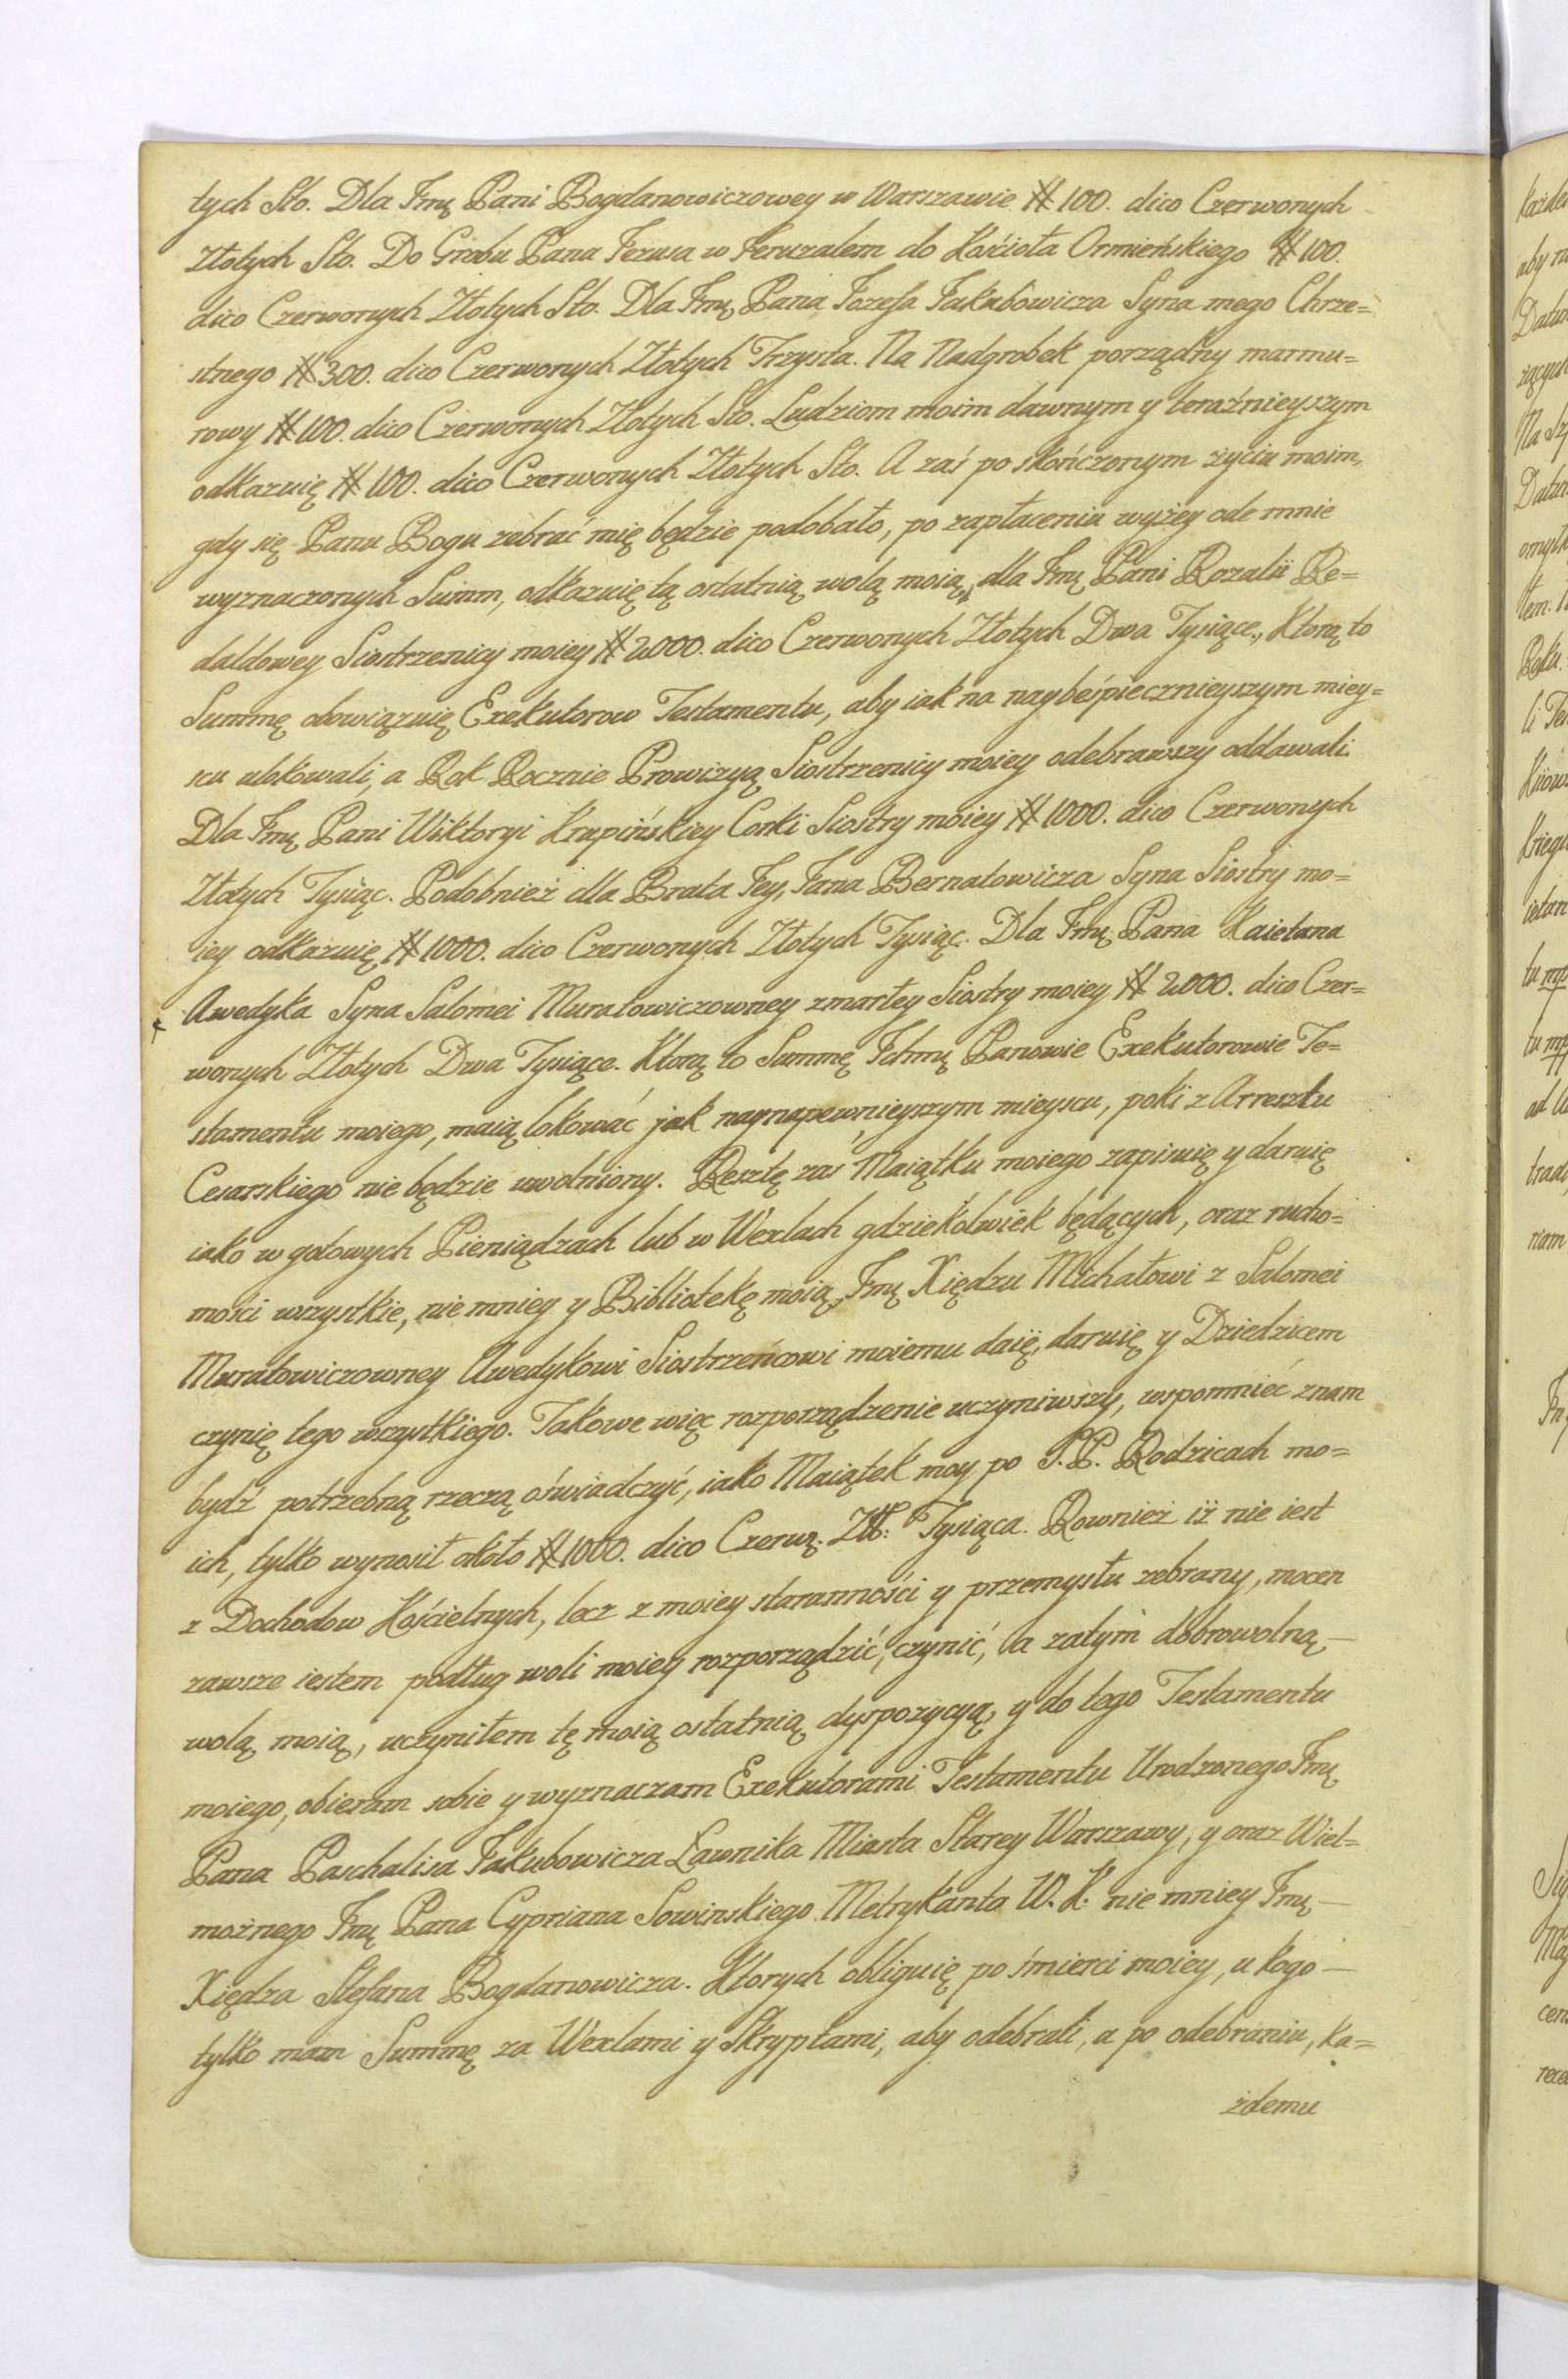 tych Sto. Dla Jmę Pani Bogdanowiczowey w Warszawie # 100. dico Czerwonych
Złotych Sto. Do Grobu Pana Jezusa w Jeruzalem do Kościoła Ormieńskiego # 100.
dico Czerwonych Złotych Sto. Dla Jmę Pana Jozefa Jakubowicza Syna mego Chrze=
stnego # 300. dico Czerwonych Złotych Trzysta. Na Nadgrobek porządny marmu=
rowy # 100. dico Czerwonych Złotych Sto. Ludziom moim dawnym y teraźnieyszym
odkazuię # 100. dico Czerwonych Złotych Sto. A zaś po skończonym życiu moim,
gdy się Panu Bogu zebrać mię będzie podobało, po zapłaceniu wyżey ode mnie
wyznaczonych Summ, odkazuię tą ostatnią wolą moią, dla Jmę Pani Rozalii Re=
daldowey Siostrzenicy moiey # 2000. dico Czerwonych Złotych Dwa Tysiące, Którą to
Summę obowiązuię Exekutorow Testamentu, aby iak na naybeśpiecznieyszym miey=
scu ulokowali, a Rok Rocznie Prowizyą Siostrzenicy moiey odebrawszy oddawali.
Dla Jmę Pani Wiktoryi Krupińskiey Corki Siostry moiey # 1000. dico Czerwonych
Złotych Tysiąc. Podobnież dla Brata Jey, Jana Bernatowicza Syna Siostry mo=
iey odkazuię # 1000. dico Czerwonych Złotych Tysiąc. Dla Jmę Pana Kaietana
Awedyka Syna Salomei Muratowiczowney zmarłey Siostry moiey # 2000. dico Czer=
wonych Złotych Dwa Tysiące. Którą to Summę Ichmę Panowie Exekutorowie Te=
stamentu moiego, maią lokować jak naynapewnieyszym mieyscu, poki z Arresztu
Cesarskiego nie będzie uwolniony. Resztę zaś Maiątku moiego zapisuię y daruię
iako w gotowych Pieniądzach lub w Wexlach gdziekolwiek będących, oraz rucho=
mości wszystkie, nie mniey y Bibliotekę moią, Jmę Xiędzu Michałowi z Salomei
Muratowiczowney Awedykowi Siostrzeńcowi moiemu daię, daruię y Dziedzicem
czynię tego wszystkiego. Takowe więc rozporządzenie uczyniwszy, wspomnieć znam
bydź potrzebną rzeczą oświadczyć, iako Maiątek moy po Ś.P. Rodzicach mo=
ich, tylko wynosił około # 1000. dico Czerwo. Złł: Tysiąca. Rownież iż nie iest
z Dochodow Kościelnych, lecz z moiey staranności y przemysłu zebrany, mocen
zawsze iestem podług woli moiey rozporządzić, czynić, a zatym dobrowolną
wolą moią, uczyniłem tę moią ostatnią dyspozycyą, y do tego Testamentu
moiego, obieram sobie y wyznaczam Exekutorami Testamentu Urodzonego Jmę
Pana Paschalisa Jakubowicza Ławnika Miasta Starey Warszawy, y oraz Wiel=
możnego Jmę Pana Cypriana Sowinskiego Metrykanta W. K. nie mniey Jmę
Xiędza Stefana Bogdanowicza. Ktorych obliguię po śmierci moiey, u kogo
tylko mam Summę za Wexlami y Skryptami, aby odebrali, a po odebraniu, ka=
żdemu